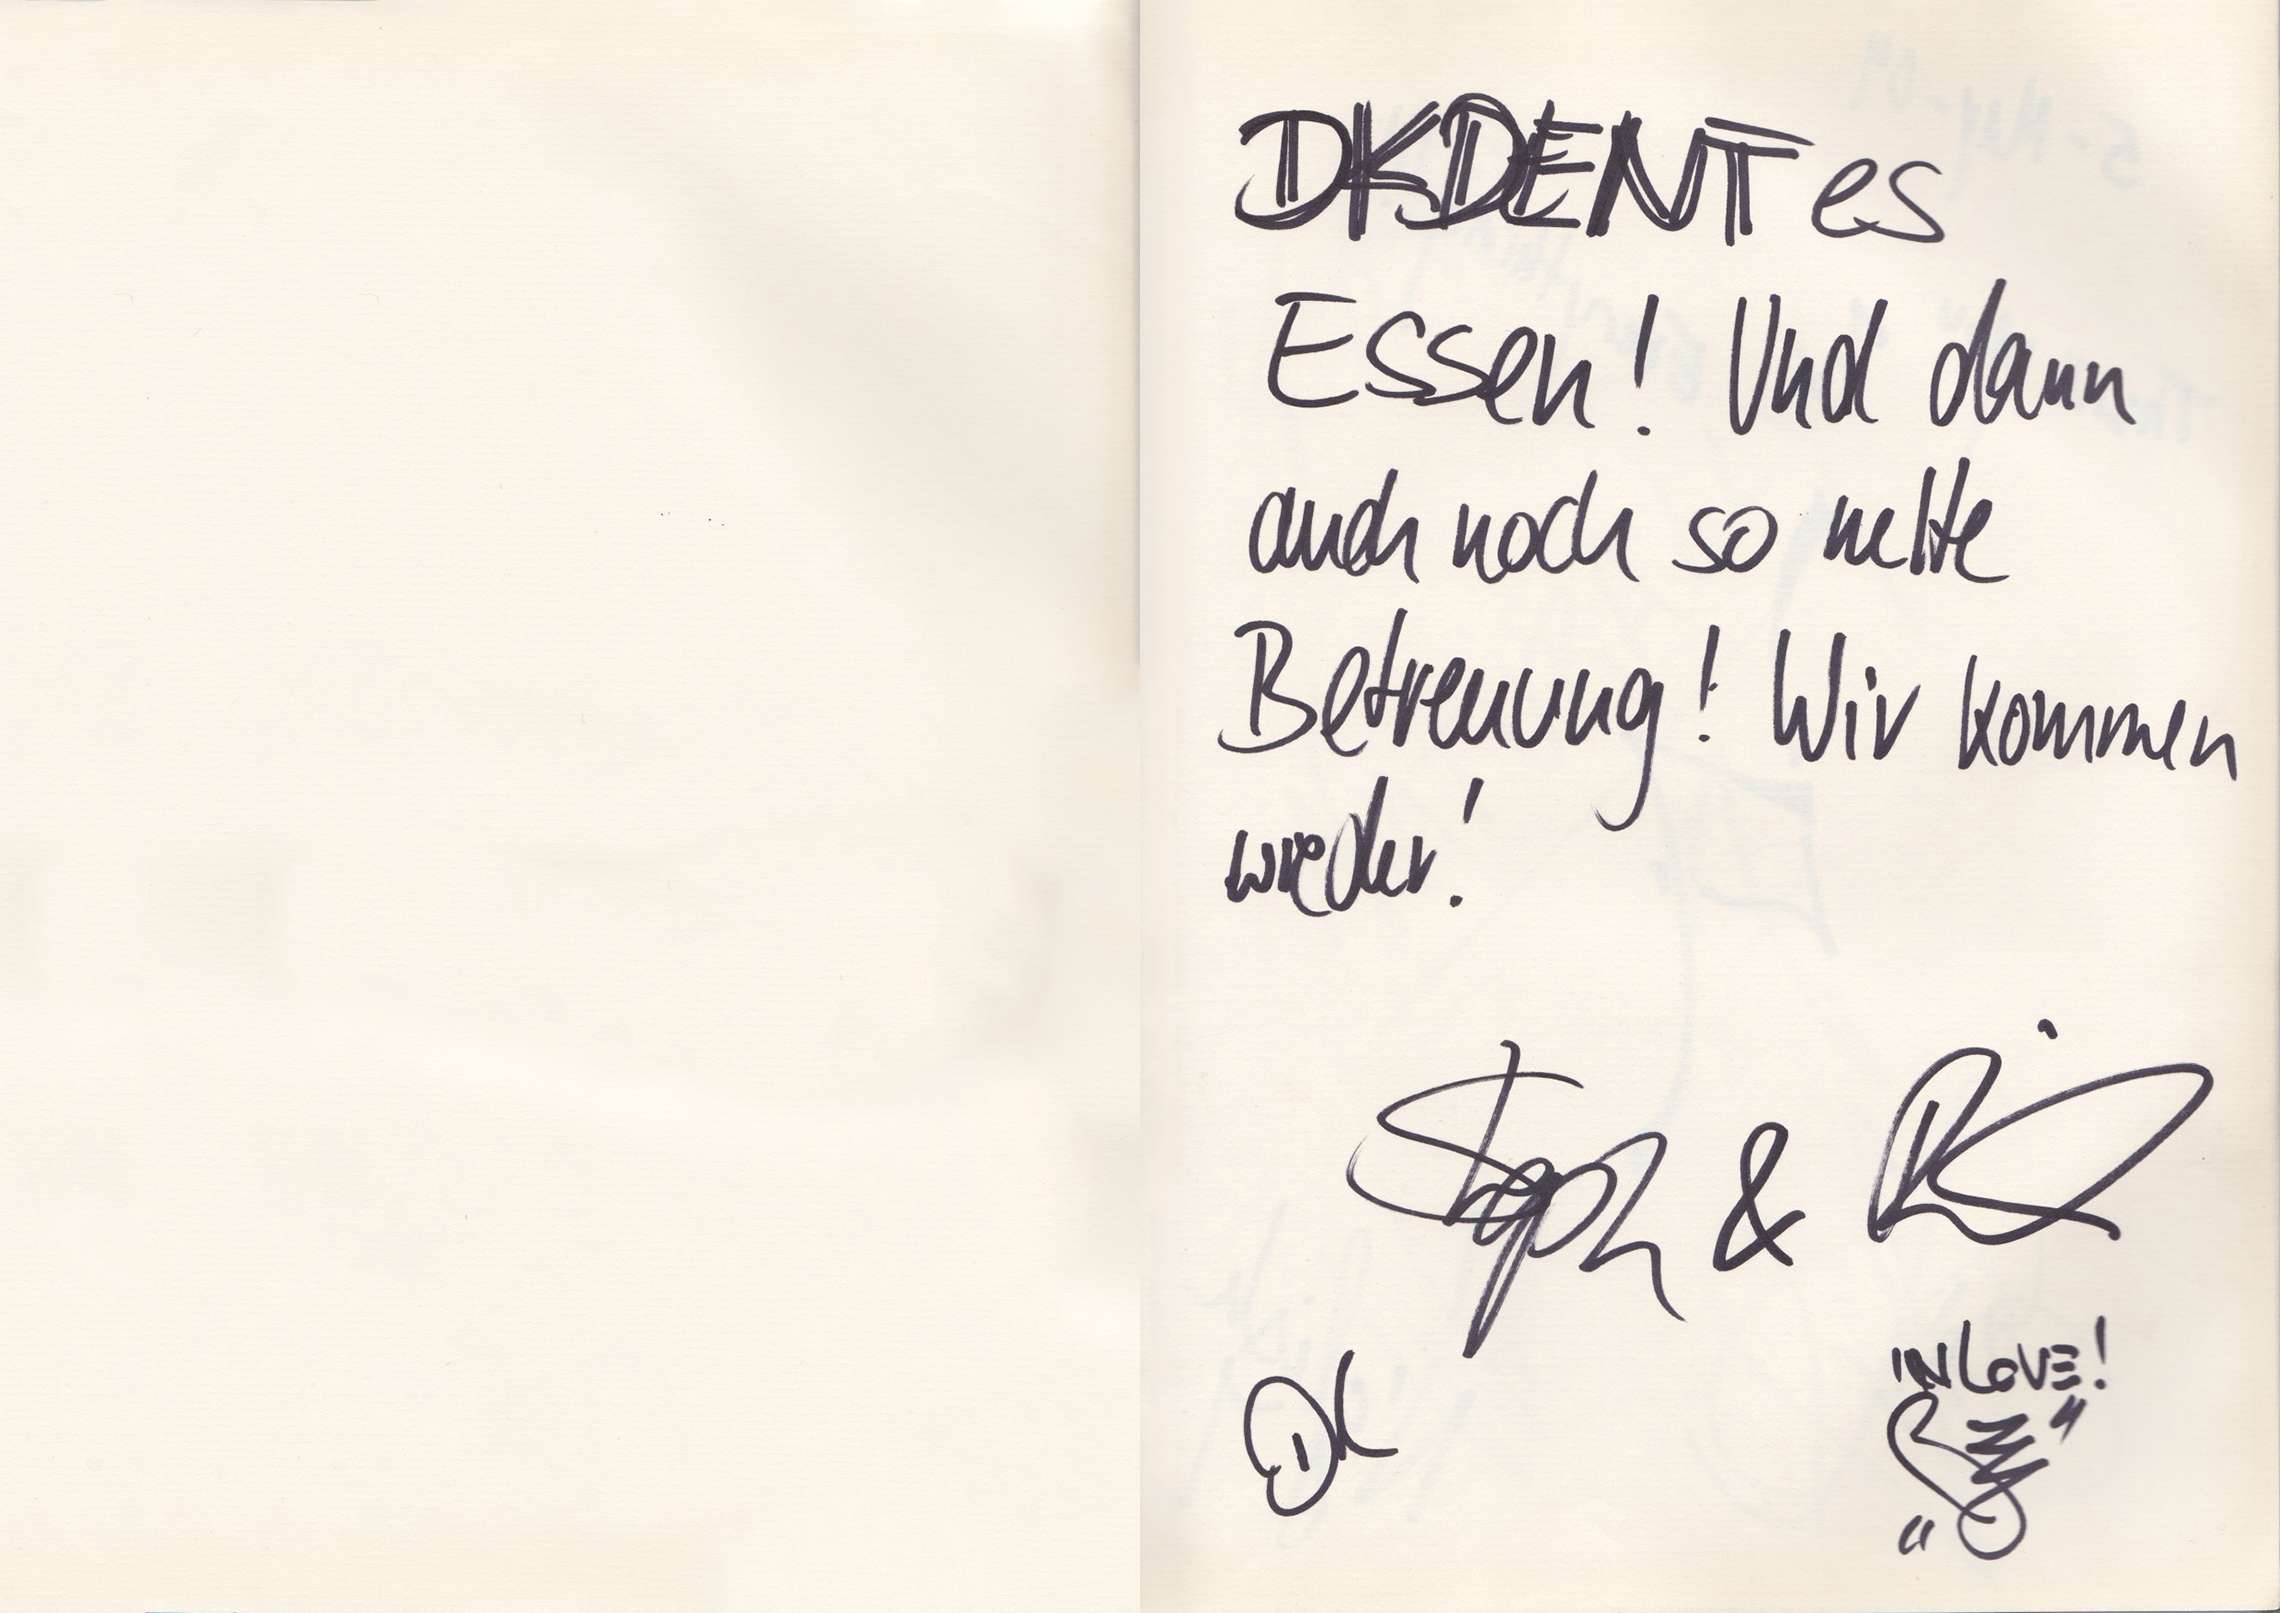 DKDENT es
Essen! Und dann
auch noch so nette
Betreuung! Wir kommen
wieder!
Steph &
IN LOVE!